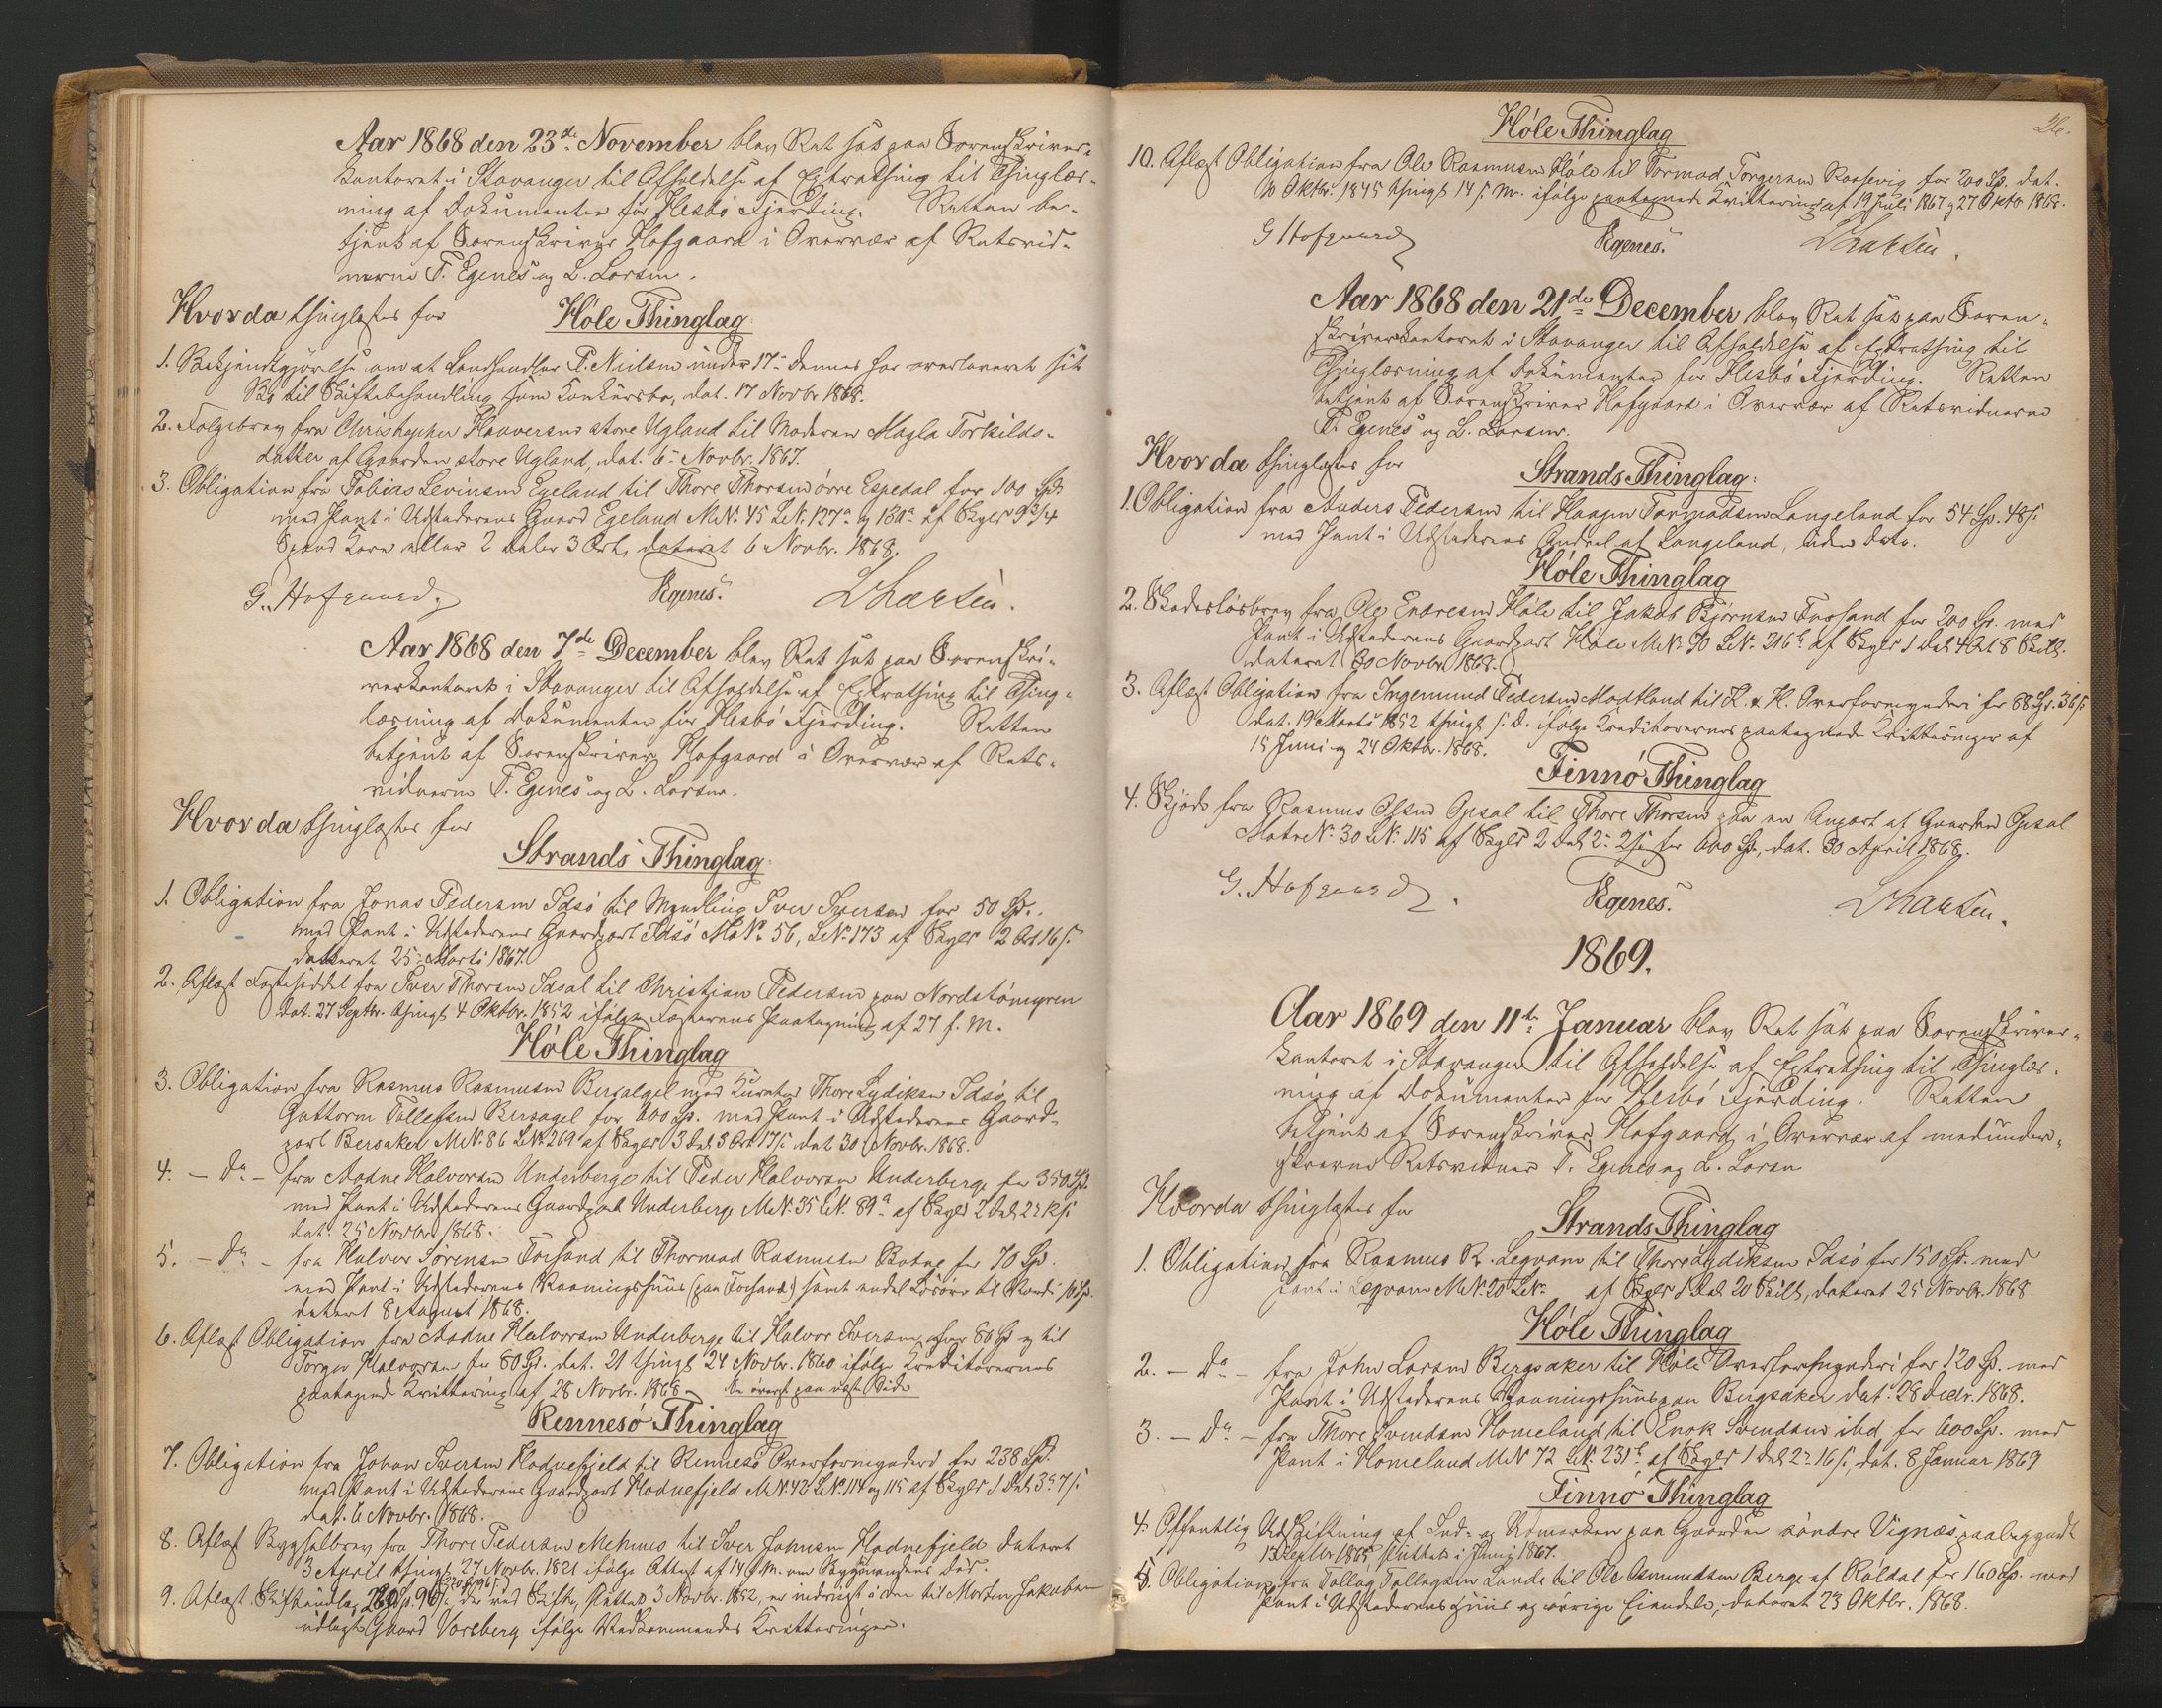 Aar 1868 den 23de November blev Ret sat paa Sorenskriver-
kontoret i Stavanger til Afholdelse af Extrathing til Thinglæs-
ning af Dokumenter for Hesbö Fjerding. Retten be-
tjent af Sorenskriver Hofgaard i Overvær af Retsvid-
nerne T. Egenes og L. Larsen.
Hvorda thinglæstes for Höle Thinglag
1. Bekjendtgjörelse om at Landhandler P. Nielsen under 17de dennes har overleveret sit
Bo til Skiftebehandling som Konkursbo, dat. 17 Novbr 1868.
2. Følgebrev fra Christopher Haaversen store Ugland til Moderen Magla Torkilds-
datter af Gaarden store Ugland, dat. 6te Novbr. 1867.
3. Obligation fra Tobias Levinsen Egeland til Thore Thorsen övre Espedal for 100 Spd
med Pant i Udstederens Gaard Egeland M.N. 45 L.N. 127a og 130a af Skyld 9 3/4
Spand Korn eller 2 Daler 3 Ort, dateret 6 Novbr. 1868.
G. Hofgaard. TEgenes. LLarsen.
Aar 1868 den 7de December blev Ret sat paa Sorenskri-
verkontoret i Stavanger til Afholdelse af Extrathing til Thing-
læsning af Dokumenter for Hesbö Fjerding. Retten
betjent af Sorenskriver Hofgaard i Overvær af Rets-
vidnerne T. Egenes og L. Larsen.
Hvorda thinglæstes for
Strands Thinglag
1. Obligation fra Jonas Pedersen Idsö til Myndling Iver Iversen for 50 Sp.
med Pant i Udstederens Gaardpart Idsö M.N. 56, L.N. 173 af Skyld 2 Ort 16 s.
dateret 25 Marts 1867.
2. Aflæst Fæsteseddel fra Iver Thorsen Idsal til Christian Pedersen paa Nordstömyren
dat. 27 Septbr. thingl. 4 Oktbr. 1852 ifölge Fæsterens Paategning af 27 f. M.
Höle Thinglag
3. Obligation fra Rasmus Rasmussen Bersagel med Kurator Thore Lydiksen Idsö til
Guttorm Tollefsen Bersagel for 600 Sp. med Pant i Udstederens Gaard-
part Bersaken M.N. 86 L.N. 269 af Skyld 3 Dal. 3 Ort 17 s. dat. 30 Novbr. 1868.
4. - Do - fra Aadne Halvorsen Underberge til Peder Halvorsen Underberge for 350 Sp.
med Pant i Udstederens Gaardpart Underberge M.N. 35 L.N. 89a af Skyld 2 Dal. 2
dat. 25 Novbr. 1868.
5. - Do - fra Halvor Sörensen Forsand til Thormod Rasmussen Botne for 70 Sp.
med Pant i Udstederens Vaaningshuus (paa Forsand) samt endel Lösöre til Værdi
dateret 8 August 1868.
6. Aflæst Obligation fra Aadne Halvorsen Underberge til Halvor Iversen for 80 Sp og til
Torger Halvorsen for 80 Sp. dat. 21 thingl. 24 Novbr. 1860 ifölge Kreditorernes
paategnede Kvittering af 28 Novbr. 1868. Se överst paa næste Side
Rennesö Thinglag
7. Obligation fra Johan Iversen Hodnefjeld til Rennesö Overformynderi for 238 Sp.
med Pant i Udstederens Gaardpart Hodnefjeld M.N. 42 L.N. 114 og 115 af Skyld 1 Dal. 3 o 7 s.
dat. 6 Novbr. 1868.
8. Aflæst Bygselbrev fra Thore Pedersen Mehuus til Iver Johnsen Hodnefjeld dateret
3 April thingl. 27 Novbr. 1821 ifölge Attest af 14 d. M. om Bygslerendens Död.
9. Aflæst 3 Novbr. 1852, er indrömt i den til Morten Jakobsen
udlagt Gaard Voreberg ifölge Vedkommendes Kvitteringer.
26.
Höle Thinglag
10. Aflæst Obligation fra Ole Rasmussen Höle til Tormod Torgersen Kaasevig for 200 Sp. dat.
10 Oktbr. 1845 thingl. 14 s. M. ifölge paategnede Kvittering af 19 Juli 1867 og 27 Oktbr 1868.
G Hofgaard TEgenes. LLarsen.
Aar 1868 den 21de December blev Ret sat paa Soren-
skriverkontoret i Stavanger til Afholdelse af Extrathing til
Thinglæsning af Dokumenter for Hesbö Fjerding. Retten
betjent af Sorenskriver Hofgaard i Overvær af Retsvidnerne
T. Egenes og L. Larsen.
Hvorda thinglæstes for
Strands Thinglag:
1. Obligation fra Anders Pedersen til Haagen Tormodsen Langeland for 54 Sp. 48 s.
med Pant i Udstederens Andel af Langeland, uden Dato.
Höle Thinglag
2. Skadeslösbrev fra Ole Endresen Höle til Jakob Bjørnsen Forsand for 200 Sp. med
Pant i Udstederens Gaardpart Höle M.N. 70 L.N. 216b af Skyld 1 Dal. 4 Ort 8 Skill.
dateret 30 Novbr. 1868.
3. Aflæst Obligation fra Ingemund Pedersen Maatland til H. & H. Overformynderi for 88 Sp. 36 s.
dat. 19 Marts 1852 thingl. s. D. ifölge Kreditorernes paategnede Kvitteringer af
15 Juni og 24 Oktbr. 1868.
Finnö Thinglag
4. Skjöde fra Rasmus Olsen Opsal til Thore Thorsen paa en Anpart af Gaarden Opsal
Matr.N. 30 L.N. 115 af Skyld 2 Dal. 2 o 2 s. for 600 Sp., dat. 30 April 1868.
G. Hofgaard. TEgenes. LLarsen.
1869.
Aar 1869 den 11te Januar blev Ret sat paa Sorenskriver-
kontoret i Stavanger til Afholdelse af Extrathing til Thinglæs-
ning af Dokumenter for Hesbö Fjerding. Retten
betjent af Sorenskriver Hofgaard i Overvær af medunder-
skrevne Retsvidner T. Egenes og L. Larsen
Hvorda thinglæstes for
Strands Thinglag
1. Obligation fra Rasmus R. Legvam til Thore Lydiksen Idsö for 150 Sp. med
Pant i Legvam M.N. 20 L.N. af Skyld 1 Dal. 20 Skill, dateret 25 Novbr. 1868.
Höle Thinglag
2. - Do - fra John Larsen Bergsaker til Höle Overformynderi for 120 Sp. med
Pant i Udstederens Vaaningshuus paa Bergsaker dat. 28 Decbr. 1868.
3. - Do - fra Thore Svendsen Homeland til Enok Svendsen ibd. for 600 Sp. med
Pant i Homeland M.N. 72 L.N. 231b af Skyld 1 Dal. 2 o 16 s., dat. 8 Januar 1869
Finnö Thinglag
4. Offentlig Udskiftning af Ind- og Udmarken paa Gaarden söndre Vignæs paabegyndt
13 Septbr 1865, sluttet i Juni 1867.
5. Obligation fra Tollag Tollagsen Lunde til Ole Osmundsen Berge af Röldal for 160 Sp. med
Pant i Udstederens Huus og övrige Eiendele, dateret 23 Oktbr. 1868.